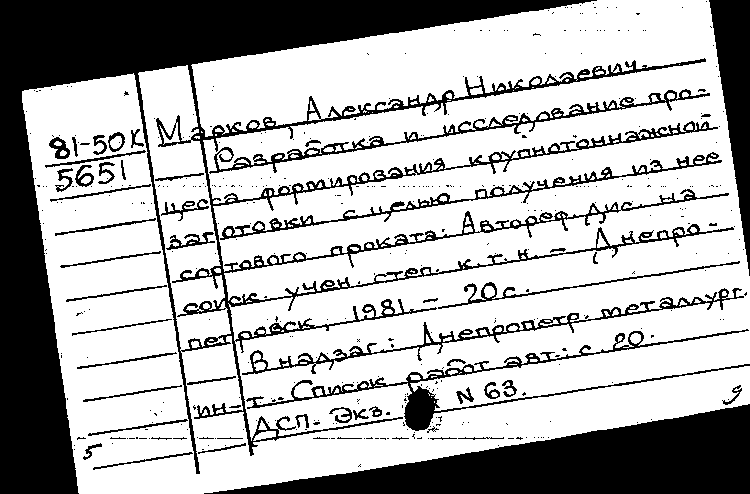 81-50К
5651
Марков, Александр Николаевич.
Разработка и исследование про-
цесса формирования крупнотоннажной
заготовки с целью получения из нее
сортового проката: Автореф. дис. на
соиск. учен. степ. к.т.н. - Днепро-
петровск, 1981. - 20 с.
В надзаг.: Днепропетр. металлург.
ин-т.. Список работ авт.: с. 20.
ДСП. Экз. N 63.
5
9